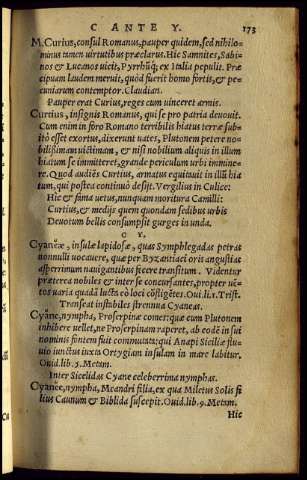 C ANTE Y. 173
M. Curius, consul Romanus, pauper quidem, sed nihilo-
minus tamen uirtutibus præclarus. Hic Samnites, Sabi-
nos & Lucanos uicit, Pyrrhũq; ex Italia pepulit. Præ
cipuam laudem meruit, quòd fuerit homo fortis, & pe-
cuniarum contemptor. Claudian.
Pauper erat Curius, reges cum uinceret armis.
Curtius, insignis Romanus, qui se pro patria deuouit.
Cum enim in foro Romano terribilis hiatus terræ subi-
tò esset exortus, dixerunt uates, Plutonem petere no-
bilißimam uictimam, & nisi nobilium aliquis in illum
hiatum se immitteret, grande periculum urbi immine-
re. Quod audiẽs Curtius, armatus equitauit in illũ hia
tum, qui postea continuò desijt. Vergilius in Culice:
Hic & fama uetus, nunquam moritura Camilli:
Curtius, & medijs quem quondam sedibus urbis
Deuotum bellis consumpsit gurges in unda.
C Y.
Cyaneæ, insulæ lapidosæ, quas Symphlegadas petras
nonnulli uocauere, quæ per Byzantiaci oris angustias
asperrimum nauigantibus fecere transitum. Videntur
præterea nobiles & inter se concurrantes, propter uẽ-
tos uaria quadã luctã eo loci cõfligẽtes. Oui. li. 1. Trist.
Transeat instabiles strennua Cyaneas.
Cyane, nympha, Proserpinæ comes: quæ cum Plutonem
inhibere uellet, ne Proserpinam raperet, ab eodẽ in sui
nominis fontem fuit commutata: qui Anapi Siciliæ flu-
uio iunctus iuxta Ortygiam insulam in mare labitur.
Ouid. lib. 5. Metam.
Inter Sicelidas Cyane celeberrima nymphas.
Cyanee, nympha, Mæandri filia, ex qua Miletus Solis fi
lius Caunum & Biblida suscepit. Ouid. lib. 9. Metam.
Hic